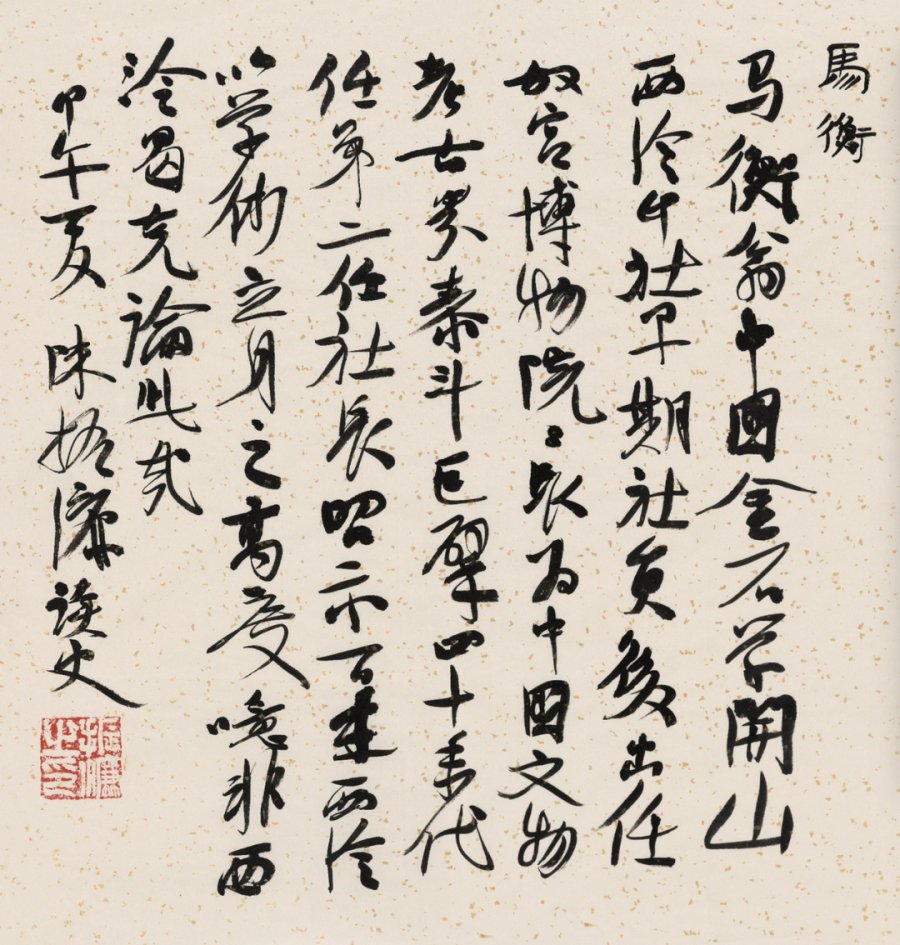 馬衡
马衡翁中国金石学開山
西泠印社早期社員後出任
故宫博物院〻長为中国文物
考古界泰斗巨擘四十年代
任第二任社長昭示百年西泠
以学術立身之高度噫非西
泠曷克論此哉
甲午夏 陈振濂读史
振濂之印